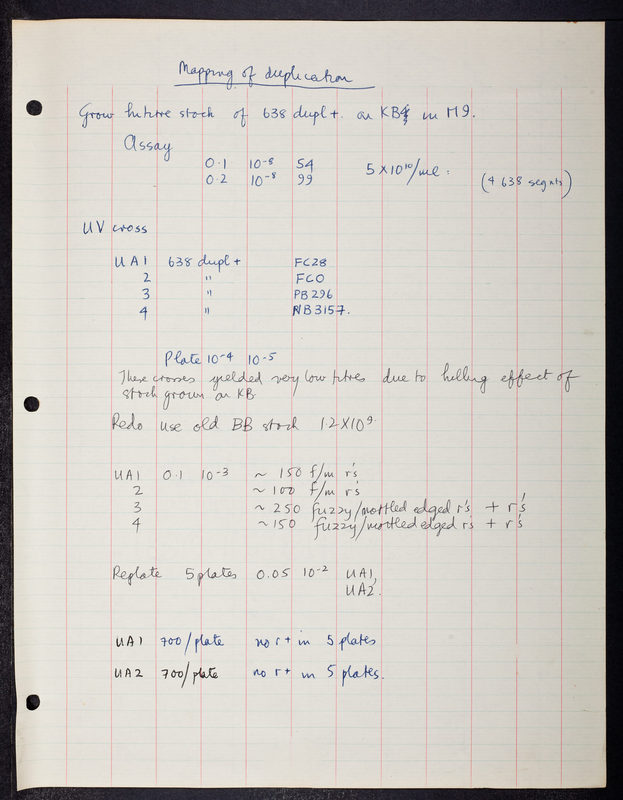 Mapping of duplication
Grow hi titre stock of 638 dupl +. on KB in M9.
Assay
0.1 10⁻⁸ 54 5 × 10¹⁰/ml.
0.2 10⁻⁸ 99 (4 638 segnts)
UV cross
UA1 638 dupl + FC28
2 " FC0
3 " PB296
4 " NB3157.
Plate 10⁻⁴ 10⁻⁵
These crosses yielded very low titres due to killing effect of
stock grown on KB.
Redo use old BB stock 1.2 × 10⁹.
UA1 0.1 10⁻³ ~ 150 f/m r's
2 ~ 100 f/m r's
3 ~ 250 fuzzy/mottled edged r's + r's
4 ~ 150 fuzzy/mottled edged r's + r's
Replate 5 plates 0.05 10⁻² UA1,
UA2.
UA1 700/plate no r+ in 5 plates
UA2 700/plate no r+ in 5 plates.